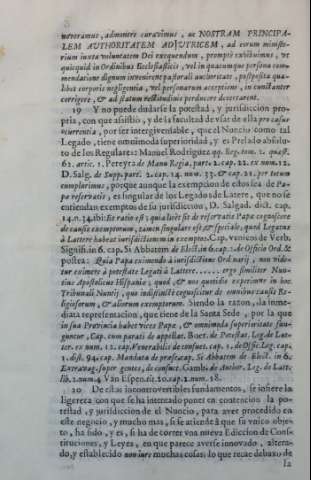 noveramus, admittere curavimus, ac NOSTRAM PRINCIPA-
LEM AUTHORITATEM ADIUTRICEM, ad eorum ministe-
rium iuxta voluntatem Dei exequendum, promptè exhibuimus, ut
quicquid in Ordinibus Ecclesiasticis, vel in quacumque persona com-
mendatione dignum invenirent pastorali authoritate, postposita qua-
libet corporis negligentia, vel personarum acceptione, in constanter
corrigere, & ad statum rectitudinis perducere decertarent.
19 Y no puede dudarse la potestad, y jurisdiccion pro-
pria, con que assistiò, y de la facultad de vsar de ella pro casuu
occurrentia, por ser intergivendable, que el Nuncio como tal
Legado, tiene omnimoda superioridad, y es Prelado absolu-
to de los Regulares: Manuel Rodriguez qq. Reg. tom. 2. quæst.
62. artic. 1. Pereyra de Manu Regia. part. 2. cap. 22. ex num. 12.
D. Salg. de Supp. part. 2. cap. 14. num. 33. & cap. 21. per totum
complurimus; porque aunque la exempcion de essos sea de Pa-
pæ reservatis, es singular de los Legados de Latere, que no se
entiendan exemptos de su jurisdiccion, D. Salgad. dict. cap.
14. n. 34. ibi: Et ratio est; quia licèt sit de reservatis Papæ cognoscere
de causis exemptorum, tamen singulare est & speciale, quod Legatus
à Lattere habeat jurisdictionem in exemptos. Cap. Venions de Verb.
Signif. in 6. cap. Si Abbatem de Elect. in 6. cap. 1. de Officio Ord. &
postea: Quia Papa eximendo à iurisdictione Ordinarij, non vide-
tur eximere à potestate Legati à Lattere...... ergo similiter Nun-
tius Apostolicus Hispaniæ; quod, & nos quotidie experimur in hoc
Tribunali Nuntij, qui indistinctè cognoscitur de omnibus causis Re-
ligiosorum, & aliorum exemptorum. Siendo la razon, la inme-
diata representacion, que tiene de la Santa Sede, por la que
in sua Provincia habet vices Papæ, & omnimoda superioritate fun-
guntur, Cap. cum parati de appellat. Boet. de Potestat. Leg. de Lat-
ter. ex num. 12. cap. Venerabilis de confuet. cap. 2. de Offic. Leg. cap.
1. dist. 94. cap. Mandata de præsc. cap. Si Abbatem de Elect. in 6.
Extravag. super gentes, de confuet. Gamb. de Author. Leg. de Latt.
lib. 2. num. 4. Van Espen. tit. 20. cap. 1. num. 18.
20 De estas incontrovertibles fundamentos, se infiere la
ligereza con que se ha intentado poner en contencion la po-
testad, y jurisdiccion de el Nuncio, para aver procedido en
este negocio, y mucho mas, si se atiende à que su vnico obje-
to, ha sido, y es, si ha de correr vna nueva Ediccion de Cons-
tituciones, y Leyes, en que parece averse innovado, altera-
do, y establecido non iure muchas cosas: lo que recae debaxo de
la